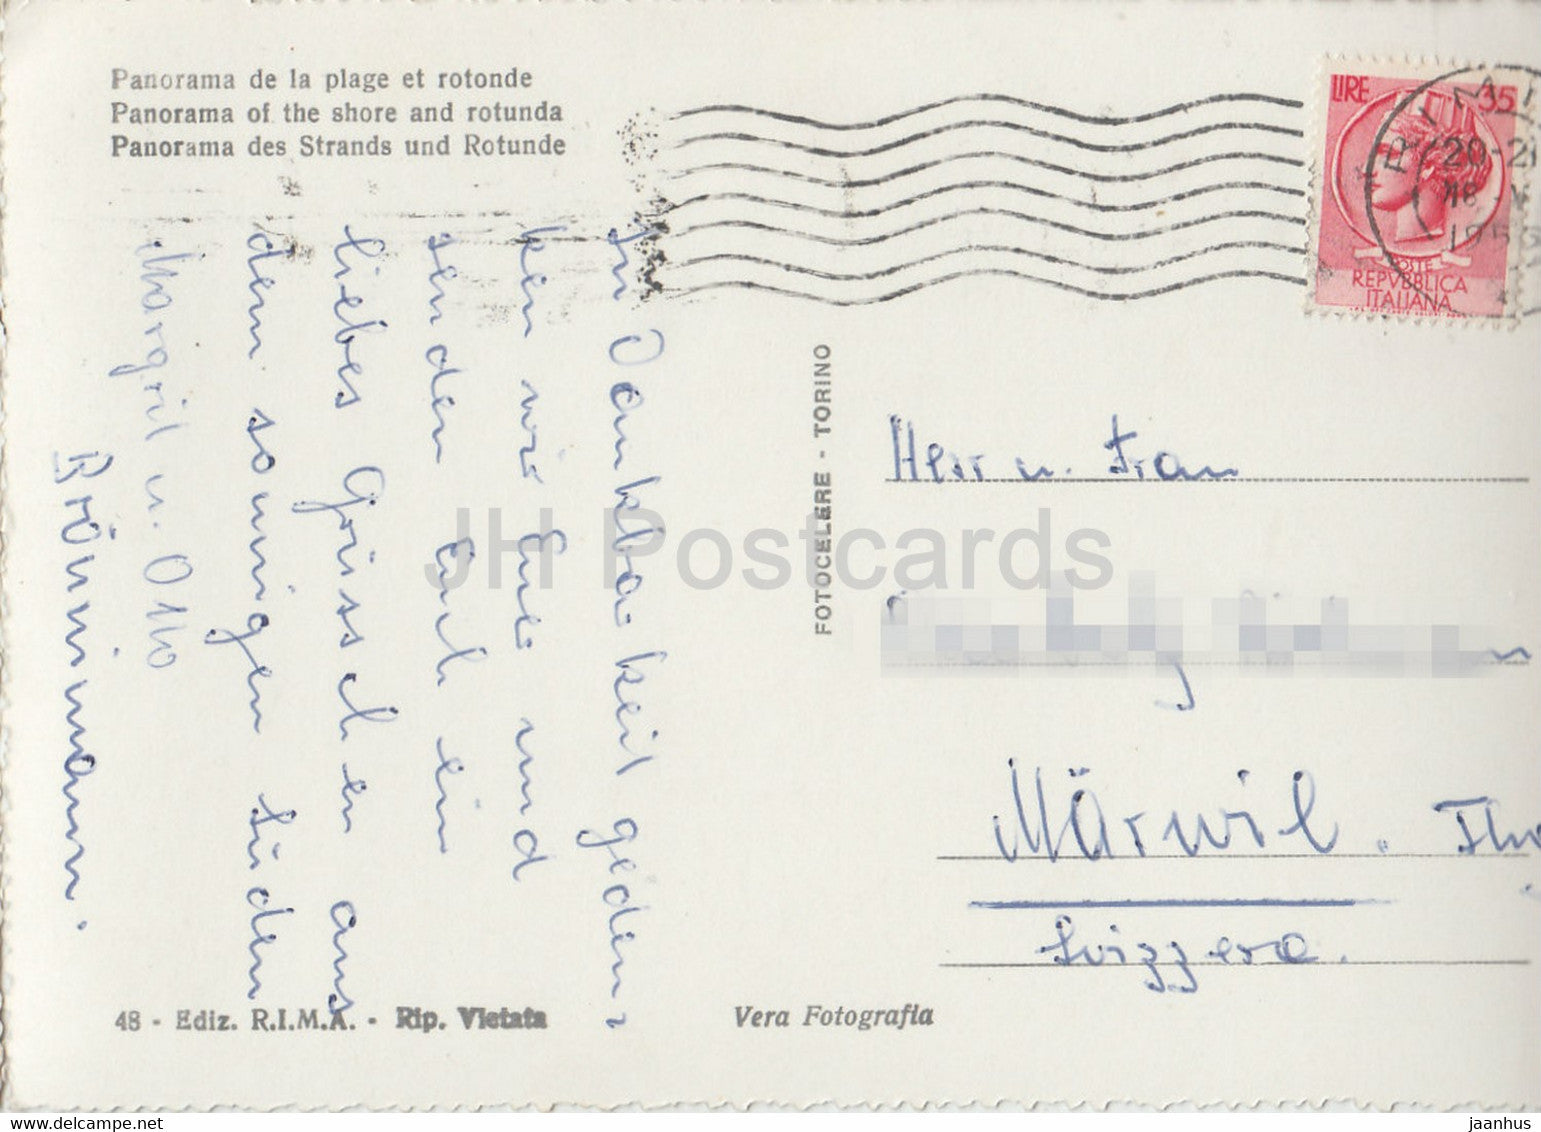 Panorama de la plage et rotonde
Panorama of the shore and rotunda
Panorama des Strands und Rotunde
LIRE 35
POSTE
REPVBBLICA
ITALIANA
RIMI
20-21
18
195
In Dankbarkeit geden-
ken wir Euer und
senden Euch ein
liebes Grüsschen aus
dem sonnigen Süden
Margrit u. Otto
Brönnimann.
FOTOCELERE - TORINO
Herr u. Frau
Märwil. Th
Svizzera.
48 - Ediz. R.I.M.A. - Rip. Vietata
Vera Fotografia
JH Postcards
www.delcampe.net
jaanhus